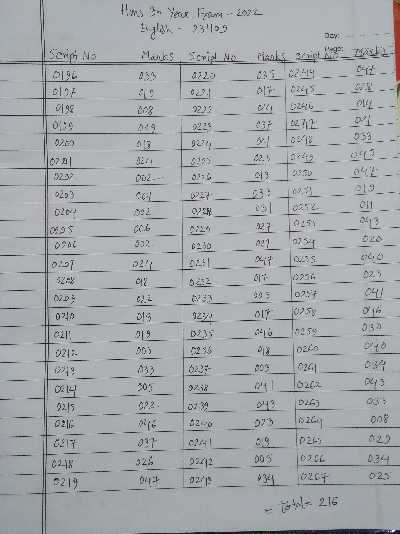 Hons 3rd Year Exam - 2022
English - 231109
Date:
Page:
Script No Marks Script No Marks Script No Marks
0196 033 0220 035 0244 047
0197 012 0221 017 0245 028
0198 008 0222 014 0246 014
0199 009 0223 037 0247 001
0200 018 0224 001 0248 033
0201 024 0225 023 0249 045
0202 002 0226 013 0250 047
0203 001 0227 033 0251 019
0204 002 0228 031 0252 011
0205 006 0229 027 0253 043
0206 002 0230 021 0254 020
0207 024 0231 047 0255 040
0208 018 0232 017 0256 023
0209 022 0233 003 0257 041
0210 013 0234 017 0258 046
0211 019 0235 046 0259 030
0212 003 0236 018 0260 040
0213 033 0237 003 0261 034
0214 005 0238 041 0262 043
0215 022 0239 043 0263 033
0216 046 0240 023 0264 008
0217 037 0241 019 0265 029
0218 026 0242 005 0266 034
0219 047 0243 034 0267 025
= Total = 216